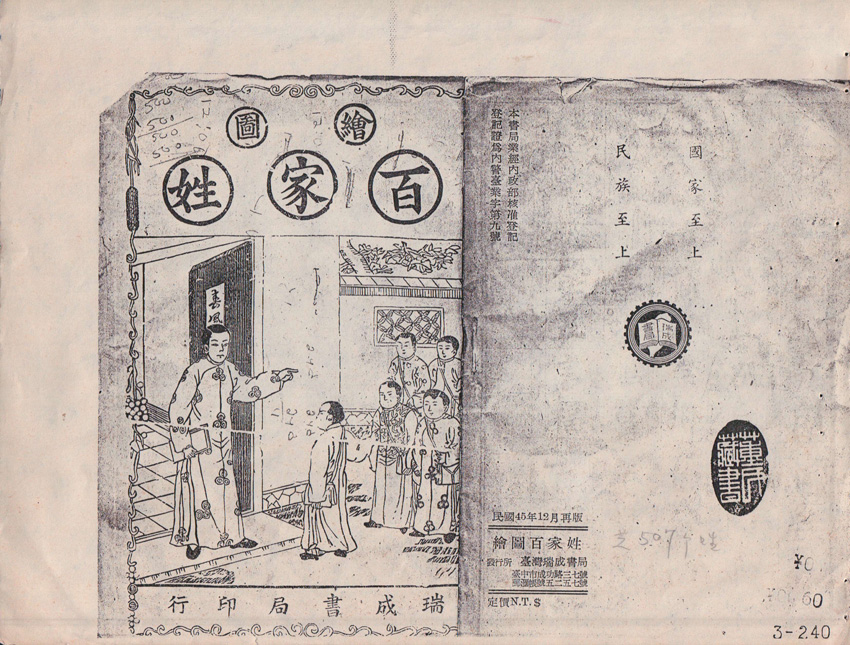 繪圖
百家姓
春風
瑞成書局印行
本書局業經內政部核准登記
登記證爲內警臺業字第九號
國家至上
民族至上
瑞成書局
藏書
民國45年12月再版
繪圖百家姓
發行所 臺灣瑞成書局
臺中市成功路三七號
定價N.T.$
¥0
60
3-240